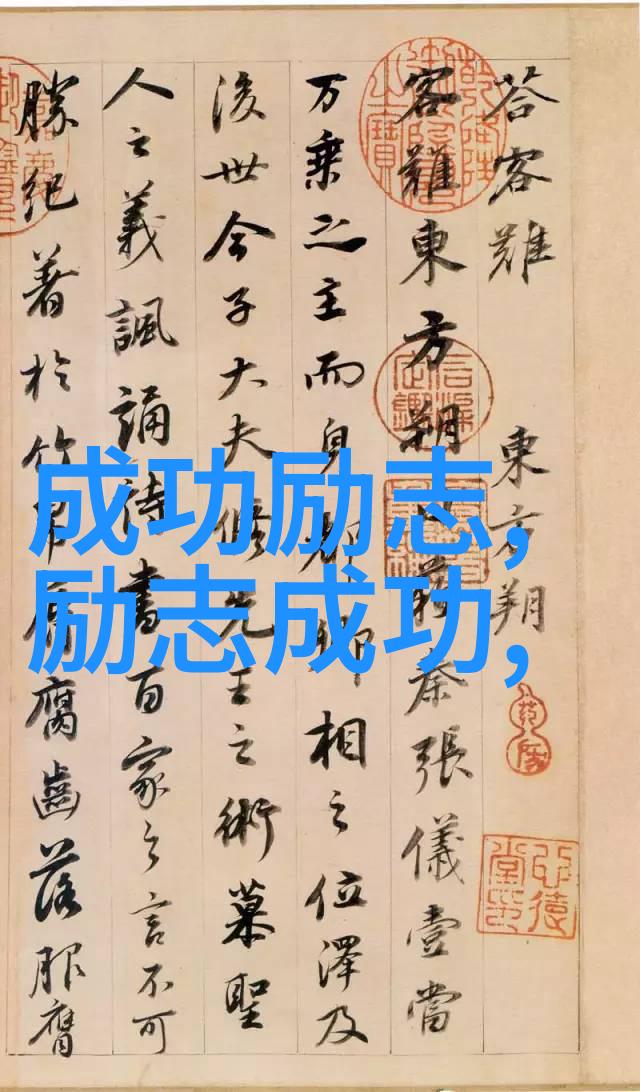 荅客難 東方朔
客難東方朔曰蘇秦張儀壹當
万乗之主而身都卿相之位澤及
後世今子大夫脩先王之術慕聖
人之義諷誦詩書百家之言不可
勝紀著於竹帛脣腐齒落服膺
成功励志,
励志成功,